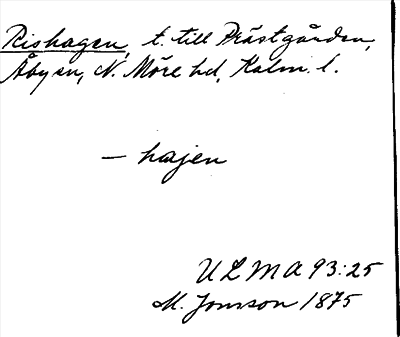 Rishagen, t. till Prästgården,
Åby sn, N. Möre hd, Kalm. l.
— hajen
ULMA 93:25
M. Jonsson 1875